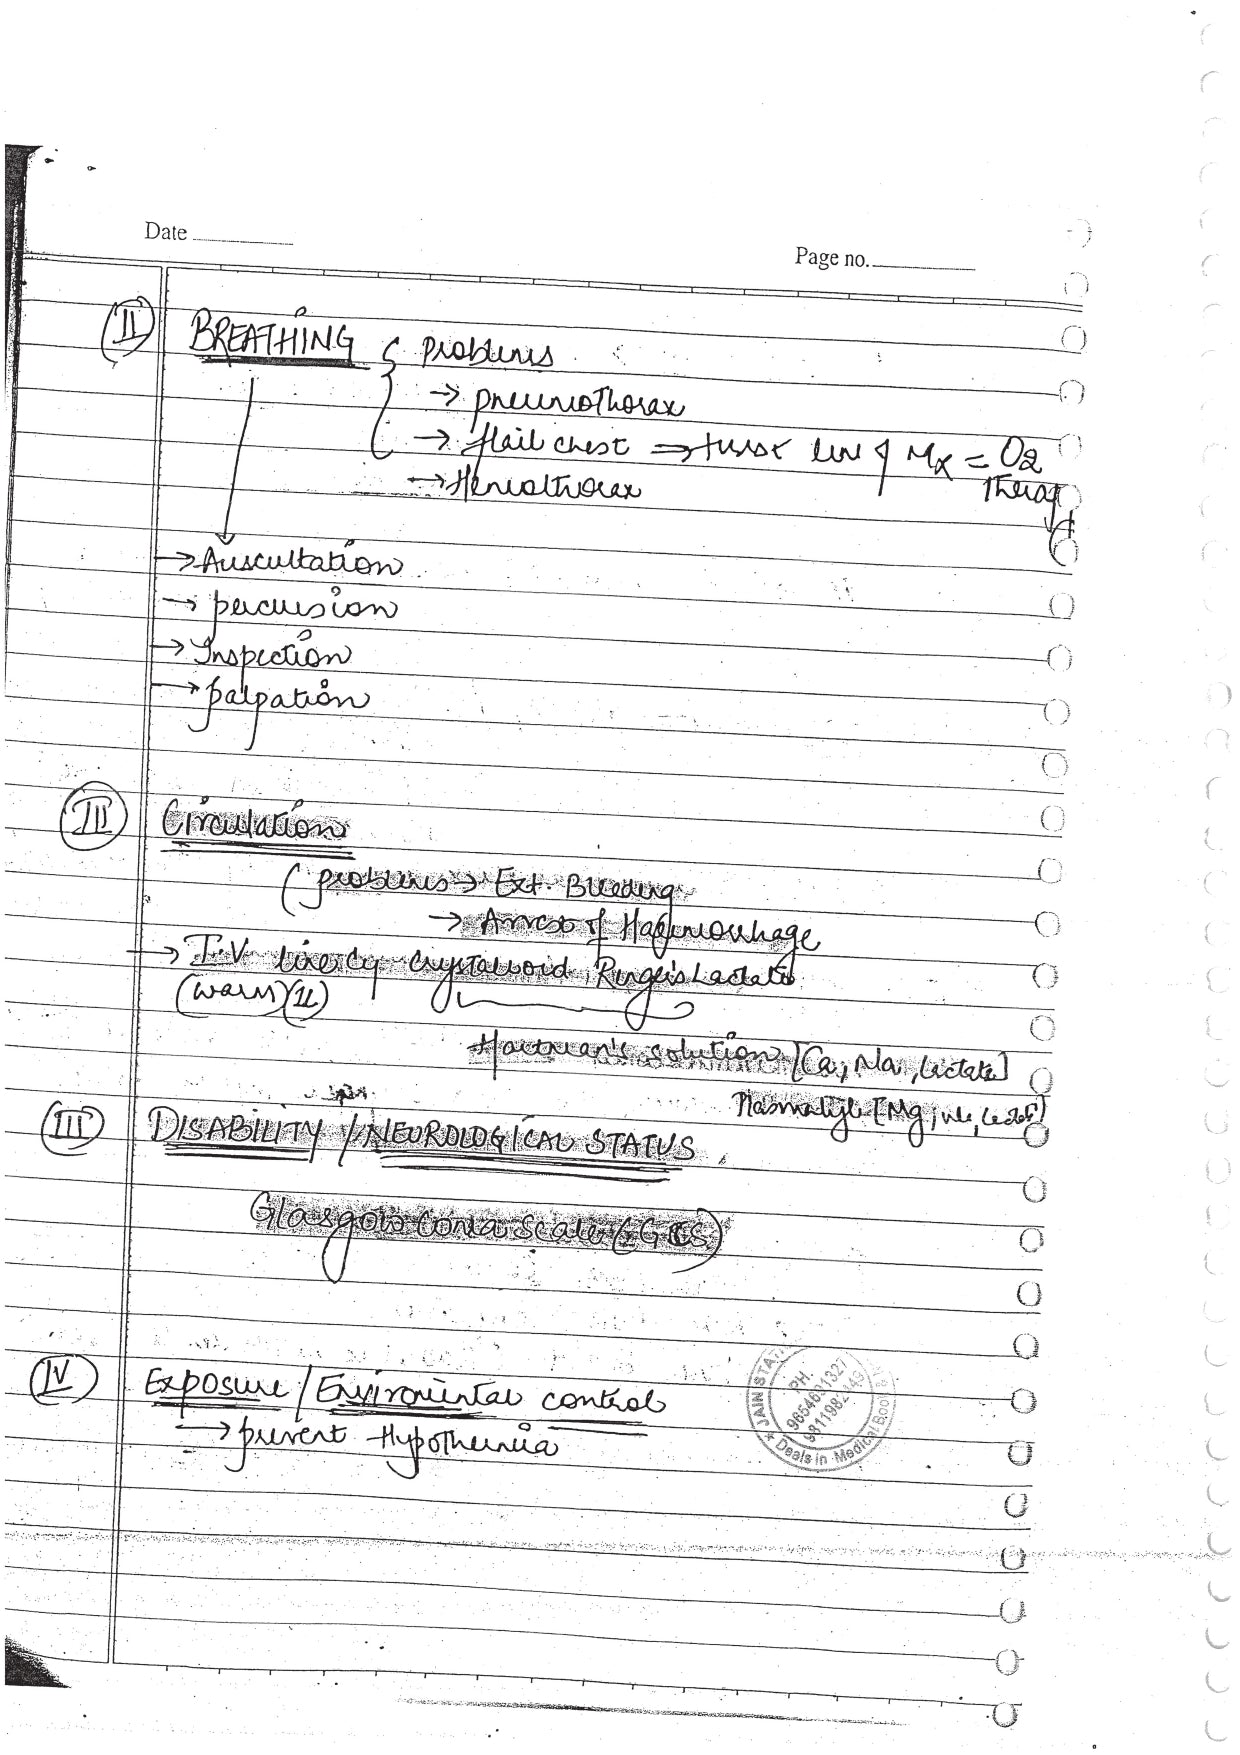 Date
Page no.
II BREATHING { problems
→ pneumothorax
→ flail chest ⇒ first line of Mx = O2
Therapy
→ Hemothorax
→ Auscultation
→ percussion
→ Inspection
→ palpation
III Circulation
(problems → Ext. Bleeding
→ Arrest of Haemorrhage
→ I.V line crystalloid, Ringer's Lactate
(warm) (1L)
Hartman's solution [Ca, Na, Lactate]
Plasmalyte [Mg,
III DISABILITY / NEUROLOGICAL STATUS
Glasgow coma scale (GCS)
IV Exposure / Enviromental control
→ prevent Hypothermia
JAIN STA
PH.
Deals in Medical Books